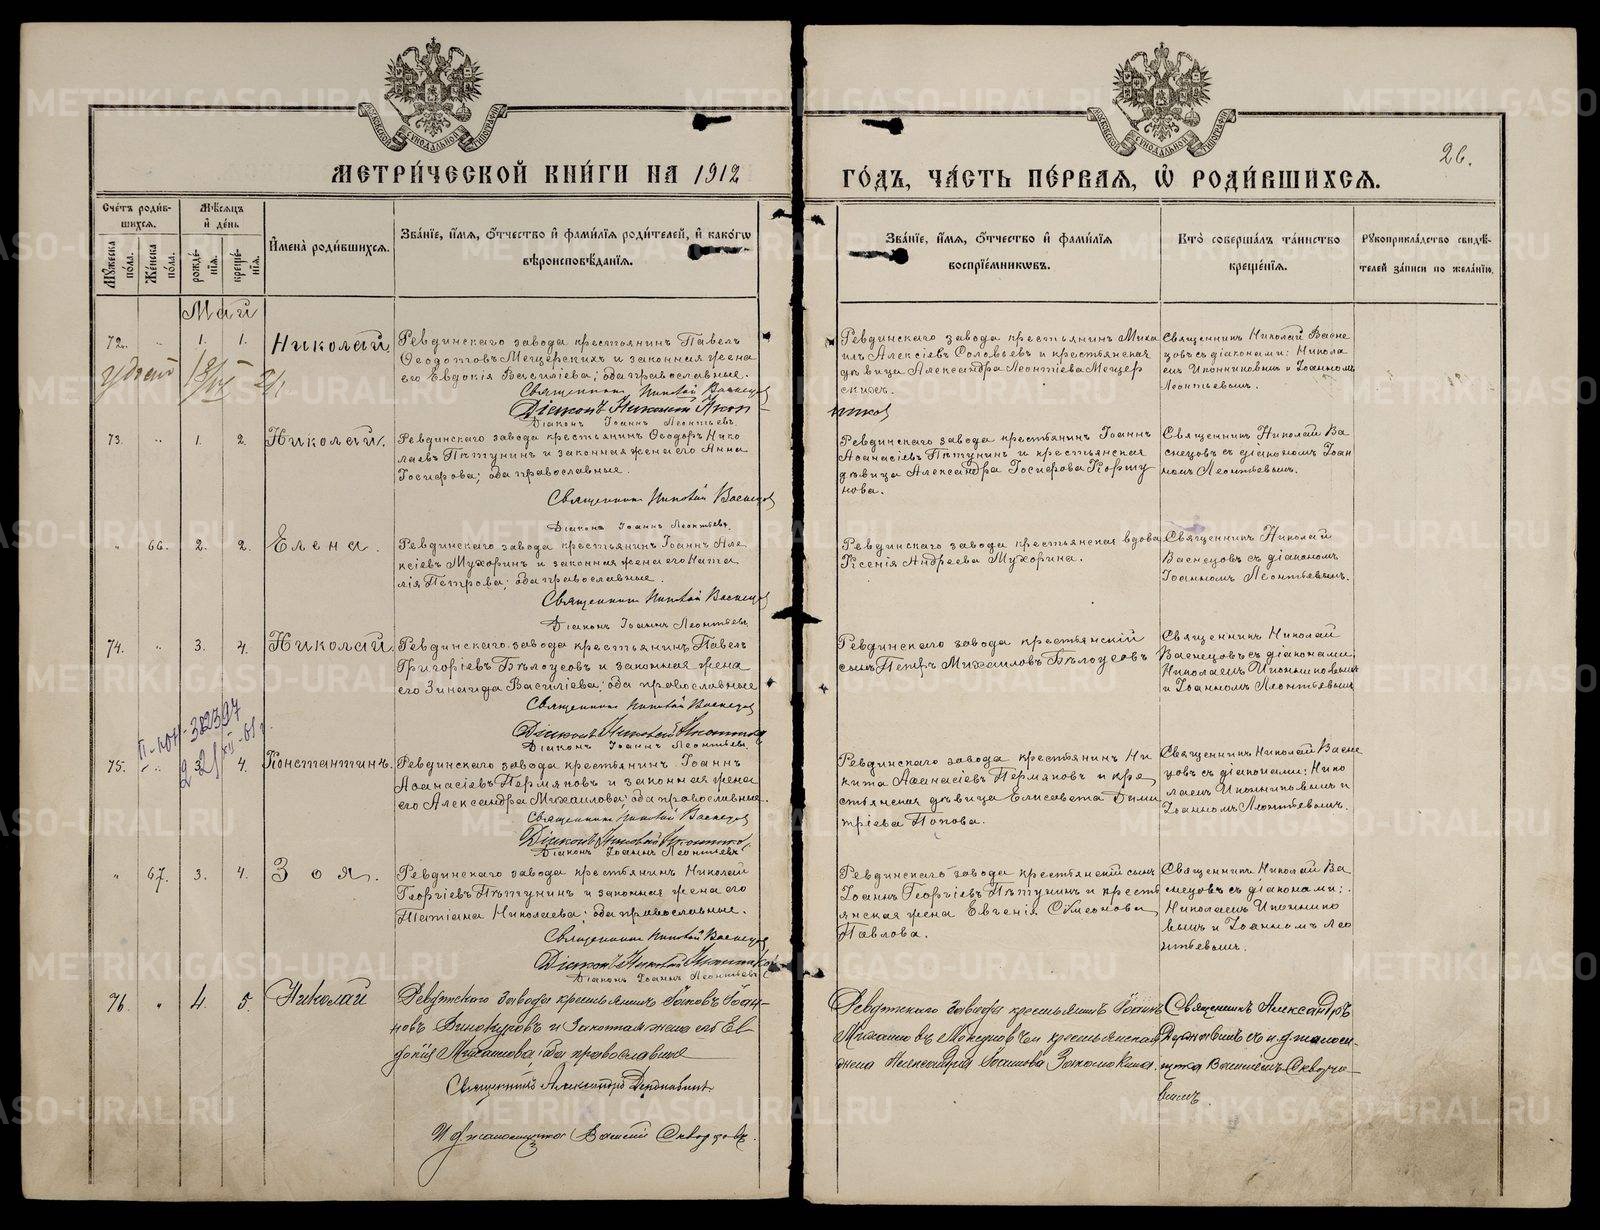 МЕТРИЧЕСКОЙ КНИГИ НА 1912
ГОДЪ, ЧАСТЬ ПЕРВАЯ, Ѡ РОДИВШИХСЯ.
26.
Счетъ родив-
шихся.
Мѣсяцъ
и день
Мужеска
пола.
Женска
пола.
рожде-
нія.
креще-
нія.
Имена родившихся.
Званіе, имя, отчество и фамилія родителей, и какогѡ
вѣроисповѣданія.
Званіе, имя, отчество и фамилія
воспріемникѡвъ.
Кто совершалъ таинство
крещенія.
Рукоприкладство свидѣ-
телей записи по желанію.
Май
72. " 1. 1. Николай
Ревдинскаго завода крестьянинъ Павелъ
Ѳеодотовъ Мещерскихъ и законная жена
его Евдокія Василіева; оба православные.
Священникъ Николай Васнецов
Діаконъ Николай Икон
ников
Діаконъ Іоаннъ Леонтьевъ.
Ревдинскаго завода крестьянинъ Миха
илъ Алексіевъ Соловьевъ и крестьянская
дѣвица Александра Леонтіева Мещер
скихъ.
Священникъ Николай Васне
цовъ съ діаконами: Никола
емъ Иконниковымъ и Іоанномъ
Леонтьевымъ.
73. " 1. 2. Николай.
Ревдинскаго завода крестьянинъ Ѳеодоръ Нико
лаевъ Пѣтунинъ и законная жена его Анна
Іосифова; оба православные.
Священникъ Николай Васнецов
Діаконъ Іоаннъ Леонтьевъ.
Ревдинскаго завода крестьянинъ Іоаннъ
Аѳанасіевъ Пѣтунинъ и крестьянская
дѣвица Александра Іосифова Коршу
нова.
Священникъ Николай Ва
снецовъ съ діакономъ Іоан
номъ Леонтьевымъ.
" 66. 2. 2. Елена.
Ревдинскаго завода крестьянинъ Іоаннъ Але
ксіевъ Мухоринъ и законная жена его Ната
лія Петрова; оба православные.
Священникъ Николай Васнецов
Діаконъ Іоаннъ Леонтьевъ
Ревдинскаго завода крестьянская вдова
Ксенія Андреева Мухорина.
Священникъ Николай
Васнецовъ съ діакономъ
Іоанномъ Леонтьевымъ.
74. " 3. 4. Николай.
Ревдинскаго завода крестьянинъ Павелъ
Григоріевъ Бѣлоусовъ и законная жена
его Зинаида Василіева; оба православные
Священникъ Николай Васнецов
Діаконъ Николай Иконников
Діаконъ Іоаннъ Леонтьевъ.
Ревдинскаго завода крестьянскій
сынъ Петръ Михаиловъ Бѣлоусовъ
Священникъ Николай
Васнецовъ съ діаконами:
Николаемъ Иконниковымъ
и Іоанномъ Леонтьевымъ
75. " 3. 4. Константинъ.
Ревдинскаго завода крестьянинъ Іоаннъ
Аѳанасіевъ Пермяковъ и законная жена
его Александра Михаилова; оба православные.
Священникъ Николай Васнецов
Діаконъ Николай Иконников
Діаконъ Іоаннъ Леонтьевъ
Ревдинскаго завода крестьянинъ Ни
кита Аѳанасіевъ Пермяковъ и кре
стьянская дѣвица Елисавета Дими
тріева Попова.
Священникъ Николай Васне
цовъ съ діаконами: Нико
лаемъ Иконниковымъ и
Іоанномъ Леонтьевымъ.
" 67. 3. 4. Зоя.
Ревдинскаго завода крестьянинъ Николай
Георгіевъ Пѣтунинъ и законная жена его
Татіана Николаева; оба православные.
Священникъ Николай Васнецов
Діаконъ Николай Иконников
Діаконъ Іоаннъ Леонтьевъ
Ревдинскаго завода крестьянскій сынъ
Іоаннъ Георгіевъ Пѣтунинъ и кресть
янская жена Евгенія Сѵмеонова
Павлова.
Священникъ Николай Ва
снецовъ съ діаконами:
Николаемъ Иконнико
вымъ и Іоанномъ Лео
нтьевымъ.
76. " 4. 5. Николай
Ревдинскаго завода крестьянинъ Іаковъ Іоан-
новъ Винокуровъ и законная жена его Ев
докія Михаилова; оба православные
Священникъ Александръ Державинъ
И. д. псаломщика Василій Скворцовъ.
Ревдинскаго завода крестьянинъ Іоаннъ
жена Александра
Священникъ Александръ
Державинъ съ и. д. псалом-
щика Василіемъ Скворцо-
вымъ.
METRIKI.GASO-URAL.RU